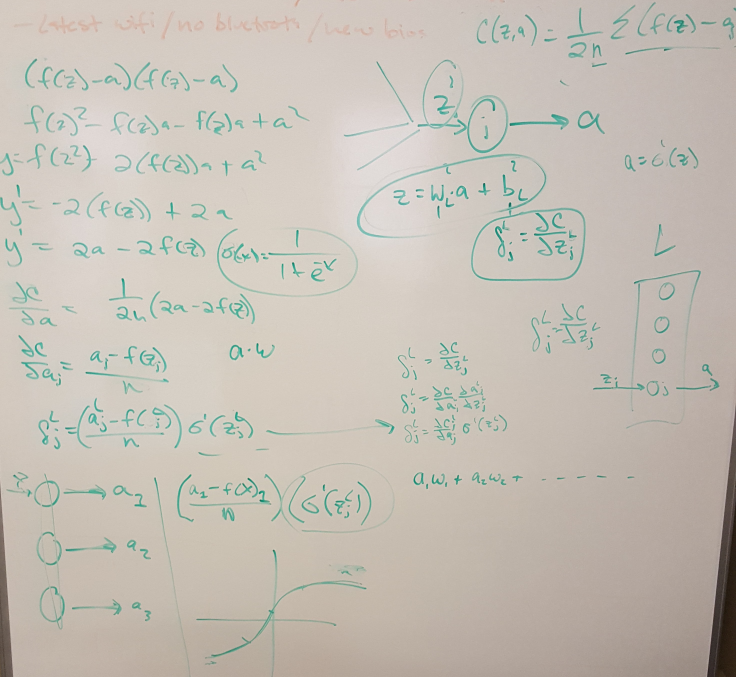 - Latest wifi / no bluetooth / new bios
C(z,a) = 1/2n Σ (f(z) - a
(f(z) - a)(f(z) - a)
f(z)² - f(z)a - f(z)a + a²
y = f(z²) - 2(f(z))a + a²
y' = -2(f(z)) + 2a
y' = 2a - 2f(z)
σ(x) = 1/1+e^-x
∂C/∂a = 1/2n (2a - 2f(z))
∂C/∂a_j = a_j - f(z_j)/n
a·w
δ_j^L = (a_j^L - f( )/n) σ'(z_j^L)
z
j
a
a = σ(z)
z = w_L·a + b_L
δ_j^L = ∂C/∂z_j^L
L
δ_j^L = ∂C/∂z_j^L
z_j
j
a
δ_j^L = ∂C/∂z_j^L
δ_j^L = ∂C/∂a_j ∂a_j/∂z_j^L
δ_j^L = ∂C/∂a_j σ'(z_j^L)
a₁w₁ + a₂w₂ + - - - - -
a₁
a₂
a₃
(a₂ - f(x)₂/n)(σ'(z_j^L))